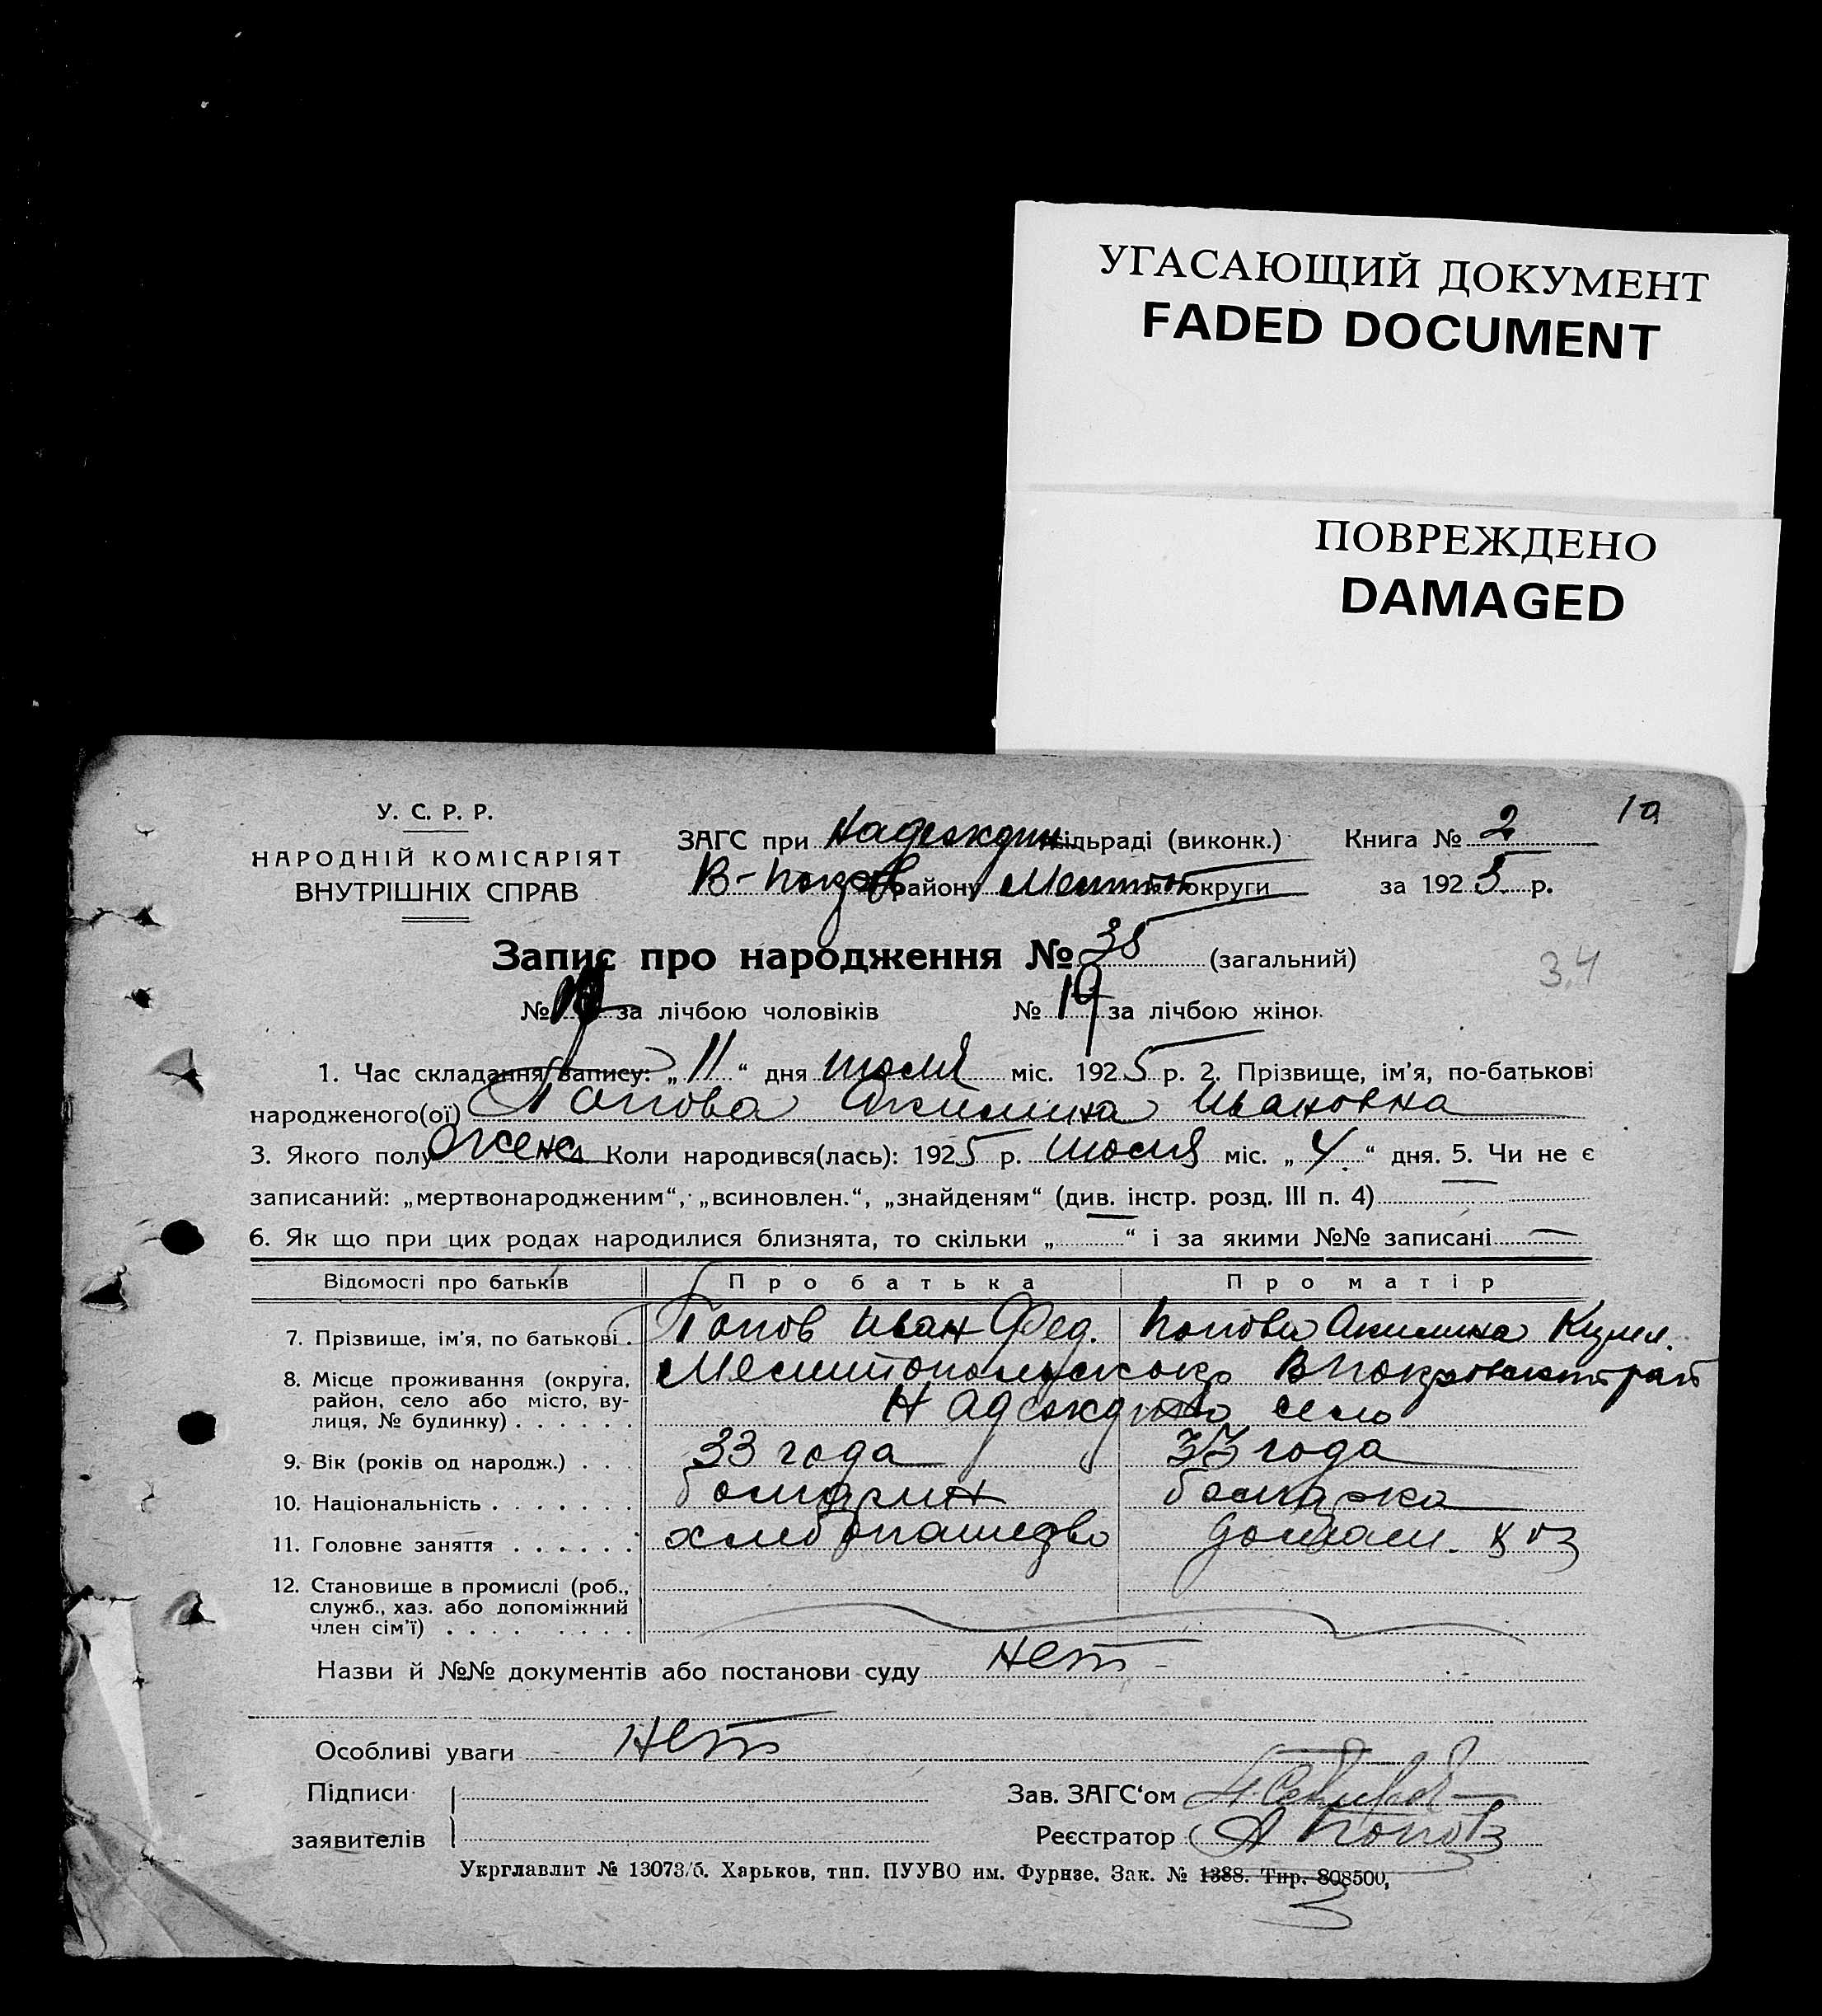 УГАСАЮЩИЙ ДОКУМЕНТ
FADED DOCUMENT
ПОВРЕЖДЕНО
DAMAGED
1а
У. С. Р. Р.
НАРОДНІЙ КОМІСАРІЯТ
ВНУТРІШНІХ СПРАВ
ЗАГС при Надеждин сільраді (виконк.) Книга № 2
В-Покров району Мелитоп округи за 1925 р.
Запис про народження № 35 (загальний)
34
№ за лічбою чоловіків № 19 за лічбою жінок
1. Час складання запису: „11“ дня июля міс. 1925 р. 2. Прізвище, ім'я, по-батькові
народженого(ої) Попова Акилина Ивановна
3. Якого полу жена 4. Коли народився(лась): 1925 р. июля міс. „4“ дня. 5. Чи не є
записаний: „мертвонародженим“, „всиновлен.“, „знайденям“ (див. інстр. розд. III п. 4) —
6. Як що при цих родах народилися близнята, то скільки „ — “ і за якими №№ записані —
Відомості про батьків Про батька Про матір
7. Прізвище, ім'я, по батькові . Попов Иван Фед. Попова Акилина
8. Місце проживання (округа, район, село або місто, вулиця, № будинку) . . . . . . Мелитопольского ВПокровского рай
Надеждино село
9. Вік (років од народж.) . . . 33 года 33 года
10. Національність . . . . . . . болгарин болгарка
11. Головне заняття . . . . . . хлебопашество домаш. хоз
12. Становище в промислі (роб.,
служб., хаз. або допоміжний
член сім'ї) . . . . . . . .
Назви й №№ документів або постанови суду нет
Особливі уваги нет
Підписи
заявителів
Зав. ЗАГС‘ом
Реєстратор А Попов
Укрглавлит № 13073/б. Харьков, тип. ПУУВО им. Фурнзе. Зак. № 1388. Тир. 808500,